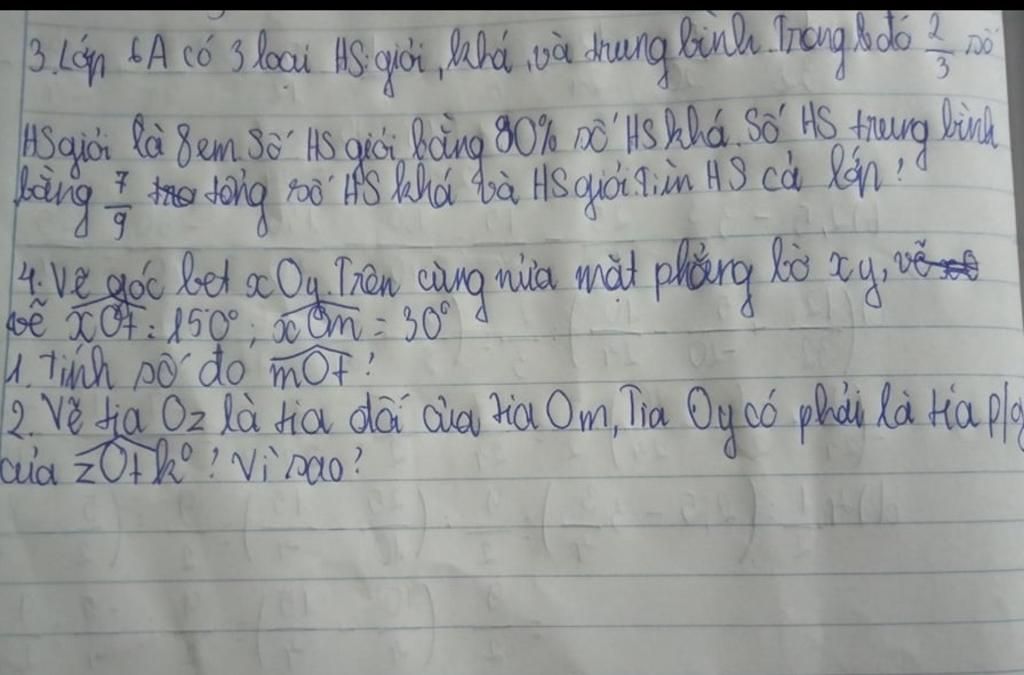 3. Lớp 6A có 3 loại HS: giỏi, khá, và trung bình. Trong đó 2/3 số
HS giỏi là 8 em. Số HS giỏi bằng 80% số HS khá. Số HS trung bình
bằng 7/9 tổng số HS khá và HS giỏi. Tìm HS cả lớp?
4. Vẽ góc bẹt xOy. Trên cùng nửa mặt phẳng bờ xy,
vẽ xOt = 150°; xOm = 30°
1. Tính số đo mOt?
2. Vẽ tia Oz là tia đối của tia Om, Tia Oy có phải là tia p/g
của zOt k°? Vì sao?